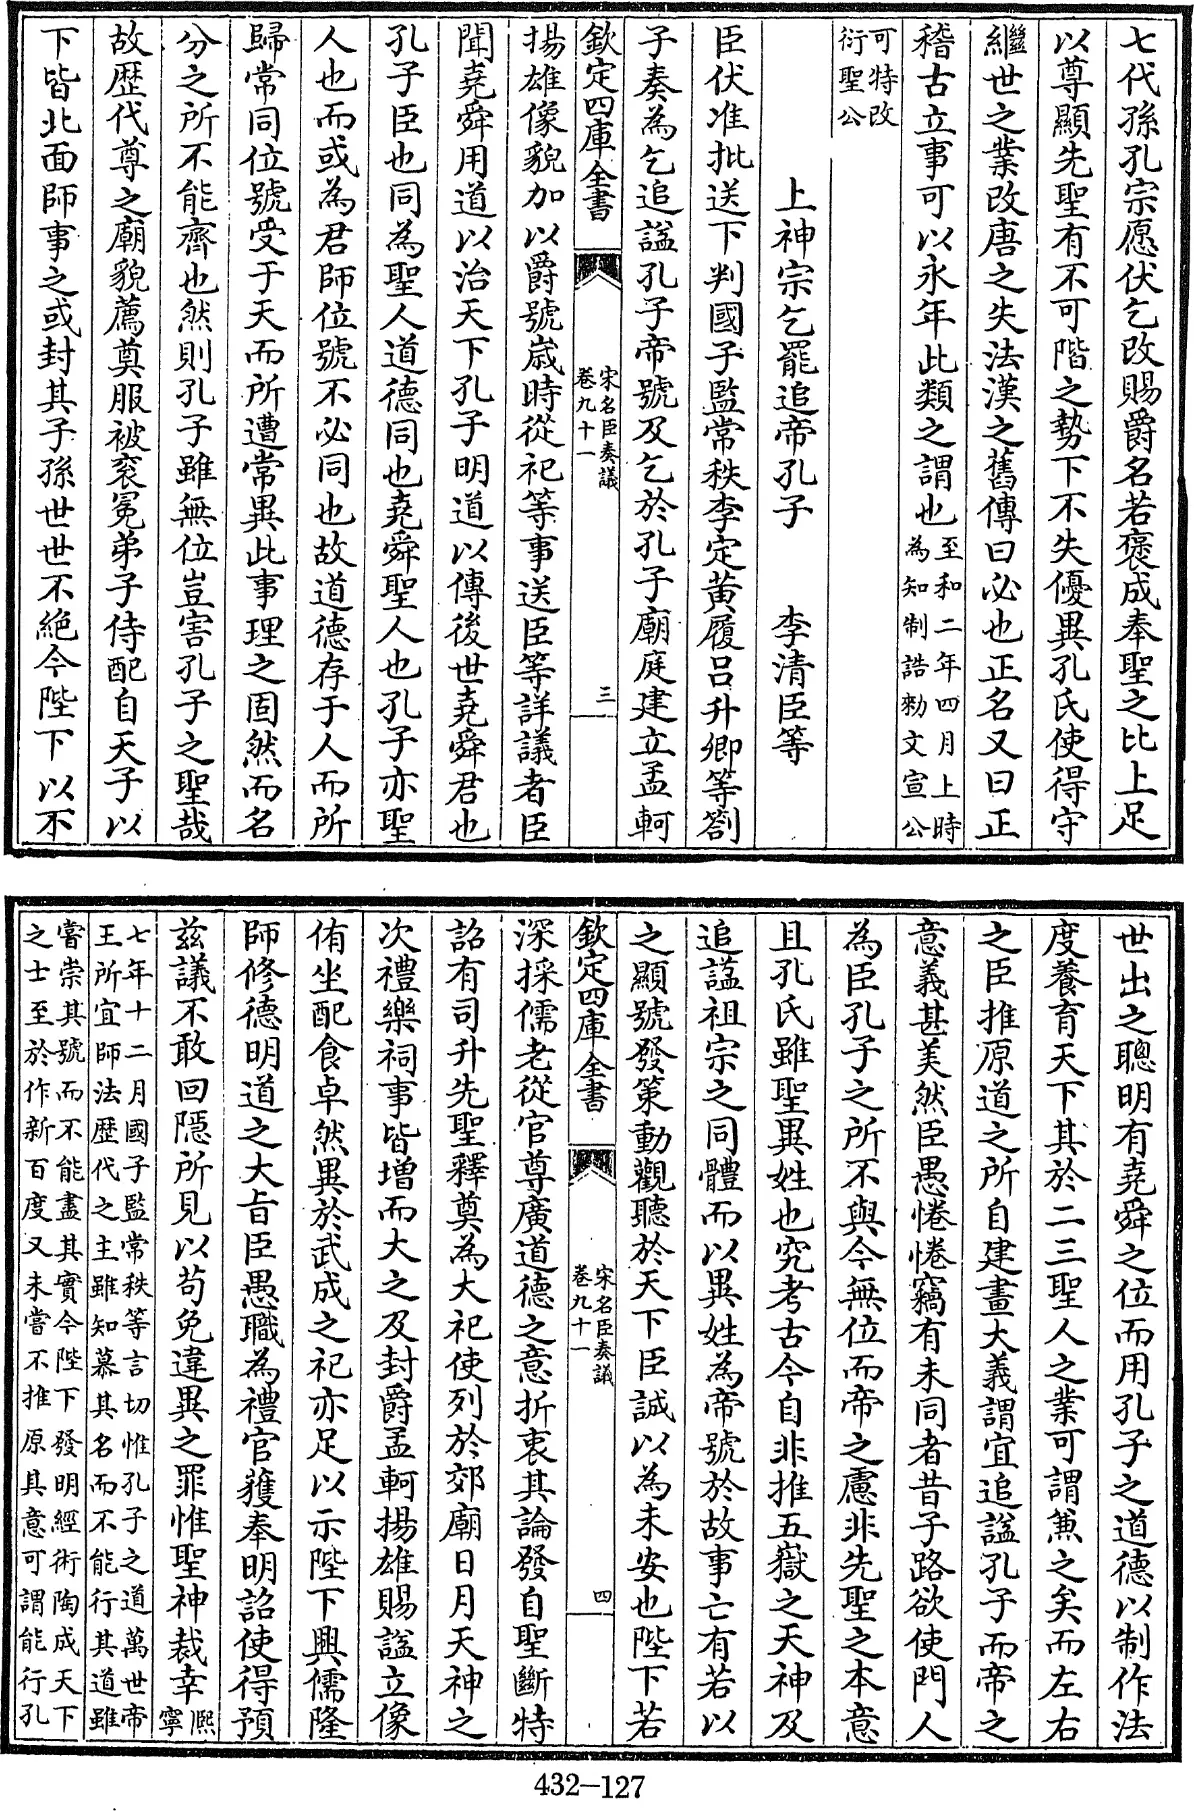 七代孫孔宗愿伏乞改賜爵名若褒成奉聖之比上足
以尊顯先聖有不可階之勢下不失優異孔氏使得守
繼世之業改唐之失法漢之舊傳曰必也正名又曰正
稽古立事可以永年此類之謂也至和二年四月上時
為知制誥勑文宣公
可特改
衍聖公
上神宗乞罷追帝孔子 李清臣等
臣伏准批送下判國子監常秩李定黄履吕升卿等劄
子奏為乞追諡孔子帝號及乞於孔子廟庭建立孟軻
欽定四庫全書 宋名臣奏議
卷九十一 三
揚雄像貌加以爵號嵗時從祀等事送臣等詳議者臣
聞堯舜用道以治天下孔子明道以傳後世堯舜君也
孔子臣也同為聖人道德同也堯舜聖人也孔子亦聖
人也而或為君師位號不必同也故道德存于人而所
歸常同位號受于天而所遭常異此事理之固然而名
分之所不能齊也然則孔子雖無位豈害孔子之聖哉
故歴代尊之廟貌薦奠服被衮冕弟子侍配自天子以
下皆北面師事之或封其子孫世世不絶今陛下以不
世出之聰明有堯舜之位而用孔子之道德以制作法
度養育天下其於二三聖人之業可謂兼之矣而左右
之臣推原道之所自建畫大義謂宜追諡孔子而帝之
意義甚美然臣愚惓惓竊有未同者昔子路欲使門人
為臣孔子之所不與今無位而帝之慮非先聖之本意
且孔氏雖聖異姓也究考古今自非推五嶽之天神及
追諡祖宗之同體而以異姓為帝號於故事亡有若以
之顯號發策動觀聽於天下臣誠以為未安也陛下若
欽定四庫全書 宋名臣奏議
卷九十一 四
深採儒老從官尊廣道德之意折衷其論發自聖斷特
詔有司升先聖釋奠為大祀使列於郊廟日月天神之
次禮樂祠事皆増而大之及封爵孟軻揚雄賜諡立像
侑坐配食卓然異於武成之祀亦足以示陛下興儒隆
師修德明道之大旨臣愚職為禮官獲奉明詔使得預
兹議不敢回隠所見以苟免違異之罪惟聖神裁幸熙
寧
七年十二月國子監常秩等言切惟孔子之道萬世帝
王所宜師法歴代之主雖知慕其名而不能行其道雖
嘗崇其號而不能盡其實今陛下發明經術陶成天下
之士至於作新百度又未嘗不推原具意可謂能行孔
432—127